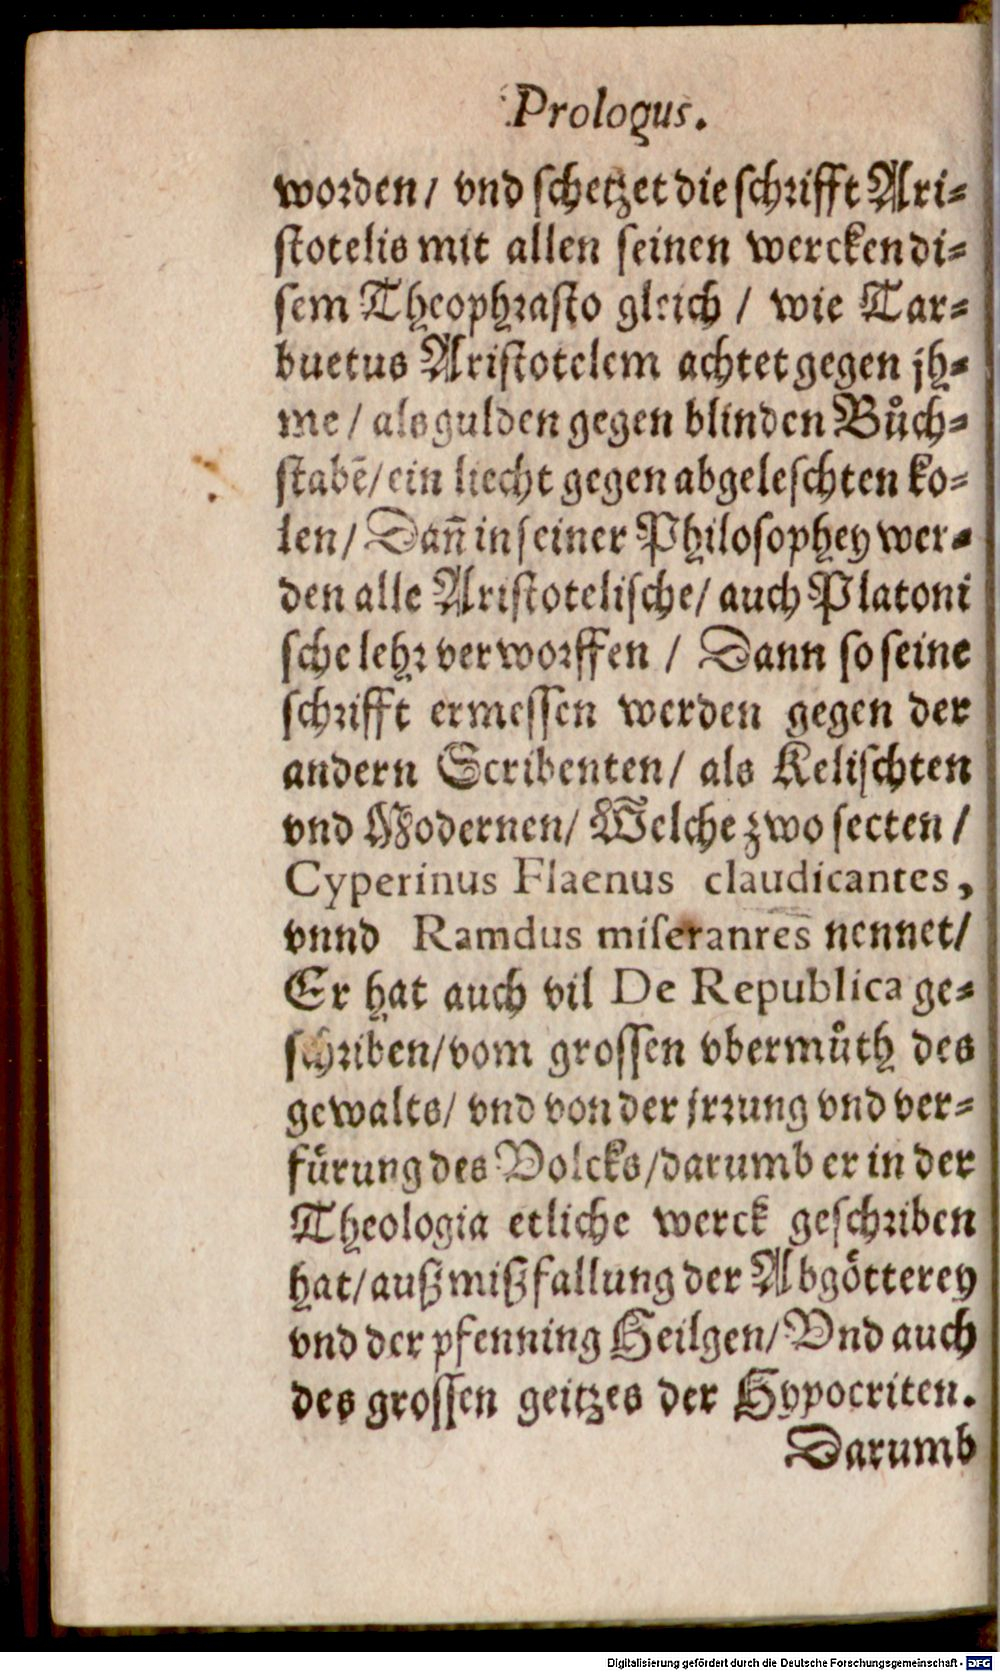 Prologus.
worden/ vnd schetzet die schrifft Ari-
stotelis mit allen seinen wercken di-
sem Theophrasto gleich / wie Tar-
buetus Aristotelem achtet gegen jh-
me / als gulden gegen blinden Bůch-
stabē/ ein liecht gegen abgeleschten ko-
len/ Dañ in seiner Philosophey wer-
den alle Aristotelische/ auch Platoni
sche lehr verworffen / Dann so seine
schrifft ermessen werden gegen der
andern Scribenten/ als Kelischten
vnd Modernen/ Welche zwo secten /
Cyperinus Flaenus claudicantes,
vnnd Ramdus miseranres nennet/
Er hat auch vil De Republica ge-
schriben/ vom grossen vbermůth des
gewalts/ vnd von der jrrung vnd ver-
fürung des Volcks/ darumb er in der
Theologia etliche werck geschriben
hat/ auß mißfallung der Abgötterey
vnd der pfenning Heilgen/ Vnd auch
des grossen geitzes der Hypocriten.
Darumb
Digitalisierung gefördert durch die Deutsche Forschungsgemeinschaft - DFG